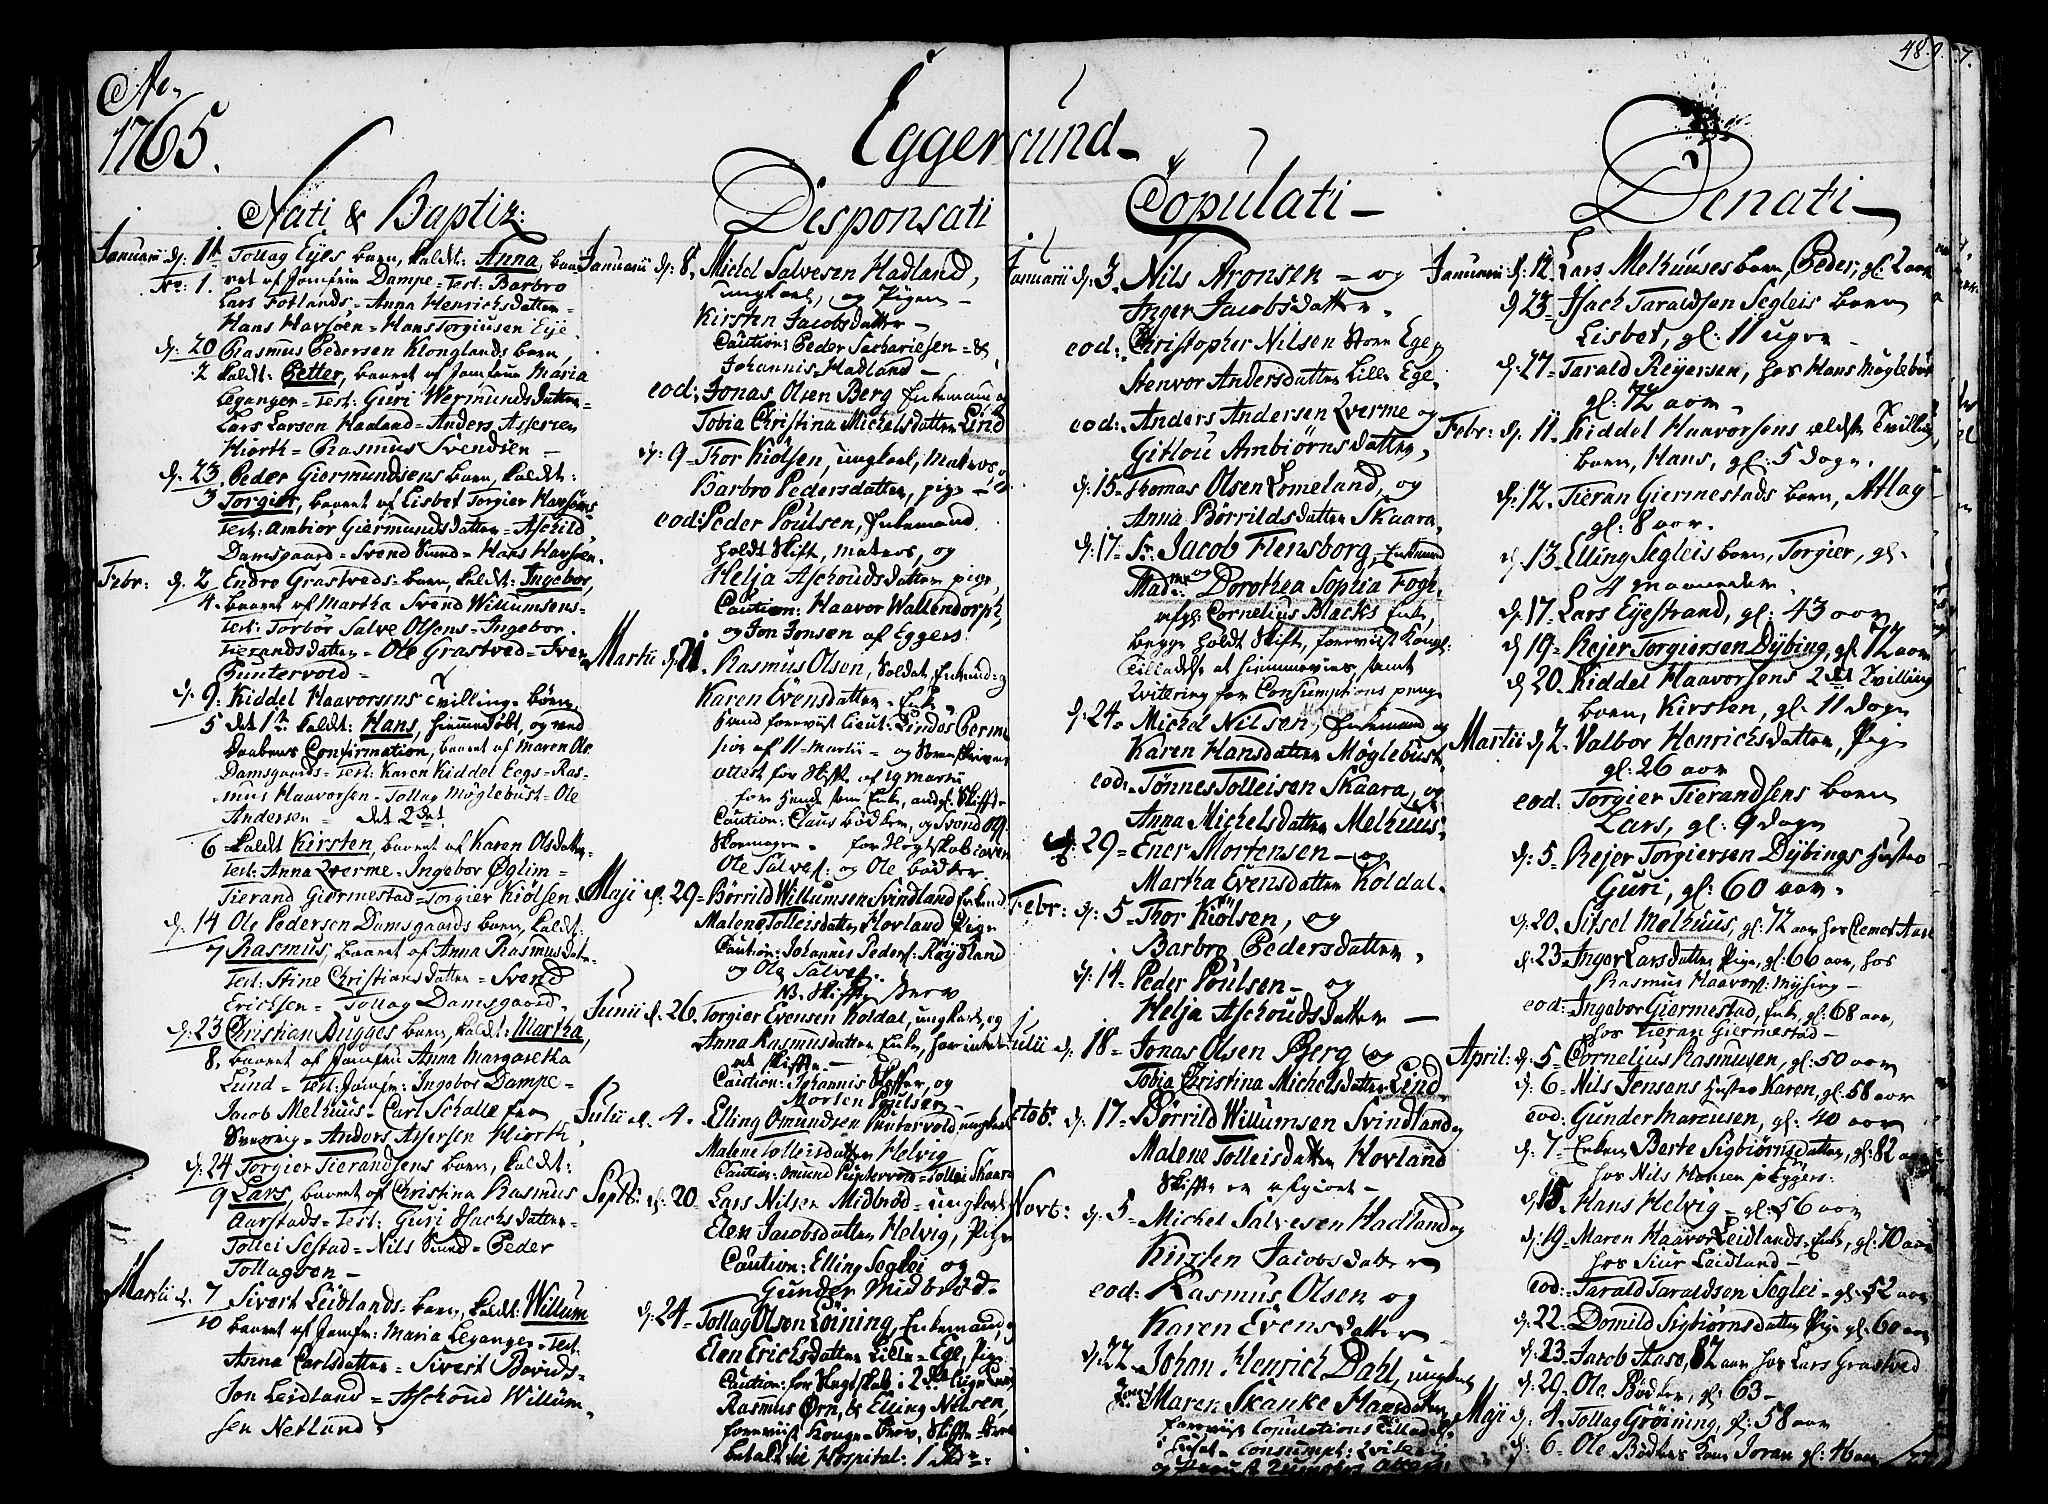 48
Ao.
1765.
Eggersund
Nati & Baptiz:
Januarii d: 11 Tollag Eyes barn, kaldt: Anna,
1. Jomfrue Dampe = Test: Barbro
Lars Fotlands = Anna Henrichsdatter =
Hans Havsøen = Hans Torgiusen Eye.
d: 20 Rasmus Pedersen Klonglands barn,
2 kaldt: Petter, baaret af Jomfrue Maria
Leganger = Test: Guri Wermundsdatter =
Lars Larsen Haaland = Anders Assersen
Hiorth = Rasmus Svendsen
d: 23. Peder Giermundsens barn, kaldt:
3 Torgier, baaret af Lisbet Torgier Havsøens
Test: Ambiør Giermundsdatter = Aschild
Damsgaard = Svend Sund = Hans Havsøen.
Febr: d: 2 Endre Grastveds barn, kaldt: Ingebor,
4. baaret af Martha Svend Willumsens =
Test: Torbør Salve Olsens = Ingebor
Tierandsdatter = Ole Grastved =
Puntervold =
d: 9. Kiddel Haavorsens tvilling børn,
5 det 1te kaldt: Hans, hiemmedøbt, og ved
Daabens Confirmation, baaret af Maren Ole
Damsgaards = Test: Karen Kiddel Eegs = Ras-
mus Haavorsen = Tollag Møglebust = Ole
Andersen = det 2det
6 kaldt Kirsten, baaret af Karen Olsdatter
Test: Anna Qverme = Ingebor Øglim =
Tierand Giermestad = Torgier Kiølsen
d: 14 Ole Pedersen Damsgaards barn, kaldt:
7 Rasmus, baaret af Anna Rasmusdat-
Test: Stine Christiansdatter = Svend
Erichsen = Tollag Damsgaard.
d: 23 Christian Bugges barn, kaldt: Martha,
8. baaret af Jomfru Anna Margaretha
Lund = Test: Jomfr: Ingebor Dampe =
Jacob Melhuus = Carl Schalle
= Anders Assersen Hiorth.
d: 24 Torgier Tierandsens barn, kaldt:
9 Lars, baaret af Christina Rasmus
Aarstads = Test: Guri Isachsdatter =
Tollei Sestad = Nils Sund = Peder
Tollagsen
Martii d: 7 Sivert Leidlands barn, kaldt: Willum
10 baaret af Jomfr: Maria Leganger = Test:
Anna Carlsdatter = Sivert
Jon Leidland = Aschoud Willum-
sen Netland.
Disponsati
Januarii d: 8. Michel Salvesen Hadland,
ungkarl, og Pigen
Kirsten Jacobsdatter
Caution: Peder Sachariesen = &
Johannis Hadland
eod: Jonas Olsen Berg Enkemand og
Tobia Christina Michelsdatter Lind
d: 9 Thor Kiølsen, ungkarl, Matros og
Barbro Pedersdatter, pige
eod: Peder Poulsen, Enkemand,
holdt Skift, matros, og
Helja Aschoudsdatter pige,
Caution: Haavor Wallendorph,
og Jon Jonsen af Eggers:
Martii d: 21. Rasmus Olsen, Soldat, Enkemand og
Karen Evensdatter Enke,
af 11 martii = og
attest for Skifte af 19 martii
Caution: Claus Bødker, og Svend
Ole Salves: og Ole Bødker.
Maji d: 29 = Børrild Willumsen Svindland Enkemd
Malene Tolleisdatter Hovland Pige
Caution: Johannis Peders: Røydland
og Ole Salves:
NB. Skifte Brev
Junii d: 26. Torgier Evensen Koldal, ungkarl, og
Anna Rasmusdatter Enke, har intet
at skifte
Caution: Johannis Skoffer, og
Morten Poulsen
Julii d. 4. Elling Omundsen Puntervold ungkarl
Malene Tolleisdatter Helvig
Caution: Omund Puntervold = Tollei Skaara
Septb: d: 20 Lars Nilsen Midbrød = ungkarl
Elen Jacobsdatter Helvig, Pige
Caution: Elling Seglei og
Gunder Midbrød
d: 24 = Tollag Olsen Løining, Enkemand, og
Elen Erichsdatter Lille = Ege, Pige
Rasmus Ørn, & Elling Nilsen,
foreviist Konge = Brev, Skifte = Brev
betalt til Hospital: 1 Rd:
Copulati
Januarii d: 3. Nils Aronsen = og
Inger Jacobsdatter.
eod: Christopher Nilsen Store Ege,
Stenvor Andersdatter Lille Ege.
eod: Anders Andersen Qverme og
Gitlou Ambiørnsdatter,
d: 15 = Thomas Olsen Lomeland, og
Anna Børrildsdatter Skaara
d: 17 = Sr. Jacob Flensborg, Enkemand
og
Madme: Dorothea Sophia Fogh,
afg: Cornelius Blachs Enke,
begge holdt Skifte, foreviist Kongl:
Tilladelse at hiemmevies, samt
Qvitering for Consumptions penge
d: 24 = Michel Nilsen, Enkemand og
Karen Hansdatter Møglebust.
eod: Tønnes Tolleisen Skaara, og
Anna Michelsdatter Melhuus
d: 29 = Ener Mortensen og
Martha Evensdatter Koldal.
Febr: d: 5 = Thor Kiølsen, og
Barbro Pedersdatter,
d: 14 = Peder Poulsen og
Helja Aschoudsdatter
Julii d: 18 = Jonas Olsen Berg og
Tobia Christina Michelsdatter Lind
Octob: d: 17 = Børrild Willumsen Svindland og
Malene Tolleisdatter Hovland
Skifte er afgiort
Novb: d: 5 = Michel Salvesen Hadland og
Kirsten Jacobsdatter
eod: Rasmus Olsen og
Karen Evensdatter
d: 22 = Johan Henrich Dahl, ungkarl
Maren Skanke Hansdatter
foreviist Copulations Tilladelse
Denati
Januarii d: 12. Lars Melhuuses barn, Peder, gl: 2 aar
d: 23 = Isach Taraldsen Segleis barn
Lisbet, gl: 11 uger
d: 27 = Tarald Reyersen, hos Hans Møglebust
gl: 72 aar,
Febr: d: 11 = Kiddel Haavorsens ældste Tvilling
barn, Hans, gl: 5 dage.
d: 12. Tieran Giermestads barn, Atlag
gl: 8 aar.
d: 13. Elling Segleis barn, Torgier, gl:
4 maaneder
d: 17 = Lars Eyestrand, gl: 43 aar
d: 19 = Rejer Torgiersen Dybing, gl: 72 aar
d: 20. Kiddel Haavorsens 2det Tvilling
barn, Kirsten, gl: 11 dage
Martii d: 2. Valbor Henrichsdatter, Pige
gl: 26 aar
eod: Torgier Tierandsens barn
Lars, gl: 9 dage
d: 5 = Rejer Torgiersen Dybings hustro
Guri, gl: 60 aar.
d: 20. Sitsel Melhuus, gl: 72 aar hos Clemet Aase
d: 23 = Inger Larsdatter Pige, gl: 66 aar, hos
Rasmus Haavors: Mysing
eod: Ingebor Giermestad, Enke, gl: 68 aar,
hos Tieran Giermestad
April: d: 5 = Cornelius Rasmusen, gl: 50 aar
d: 6 = Nils Jensens hustro Karen, gl: 58 aar
eod: Gunder Marcusen, gl: 40 aar
d: 7 = Enken Berte Sigbiørnsdatter, gl: 82 aar
hos Nils Hansen p: Eggers:
d: 15 Hans Helvig gl: 56 aar
d: 19. Maren Haavor Leidlands Enke, gl: 70 aar
hos Siur Leidland
eod: Tarald Taraldsen Seglei gl: 52 aar
d: 22. Domild Sigbiørnsdatter Pige gl: 60 aar
d: 23. Jacob Aase, 82 aar hos Lars Grastved
d: 29. Ole Bødker, gl: 63
Maji d: 4. Tollag Grøining, gl: 58 aar
d: 6 = Ole Bødkers Kone Joran gl: 46 aar